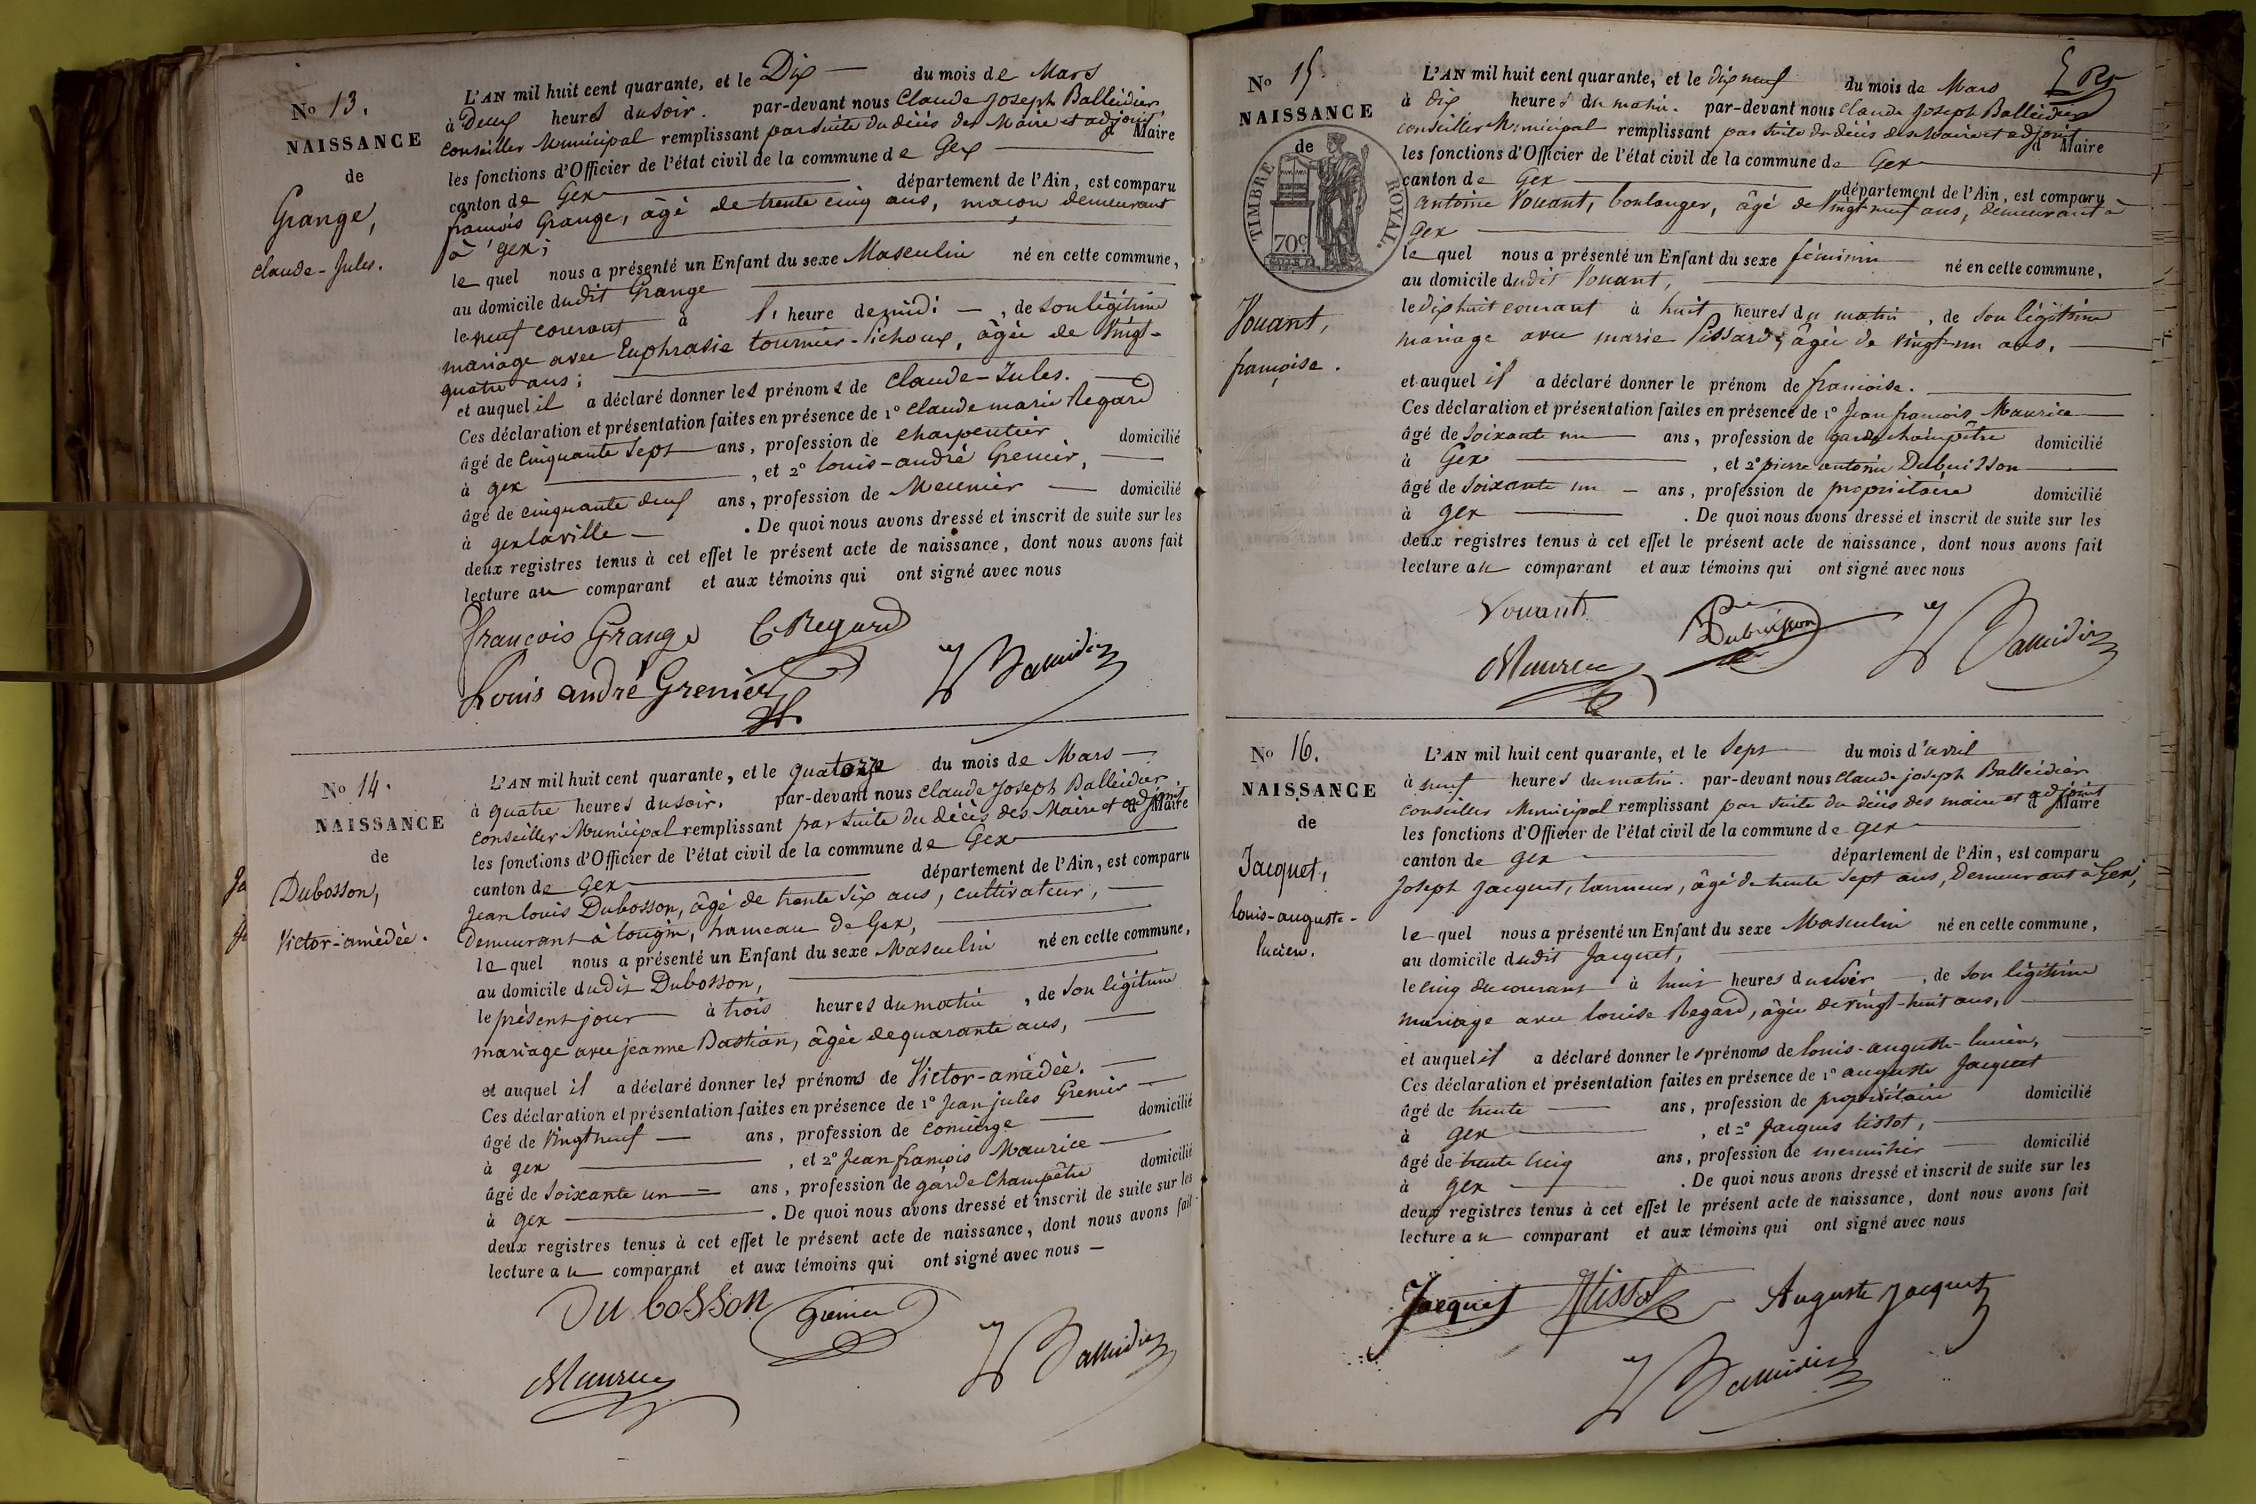 No 13.
NAISSANCE
de
Grange,
claude-Jules.
L'AN mil huit cent quarante, et le Dix du mois de Mars
à Deux heures du soir. par-devant nous Claude Joseph Balleidier,
conseiller Municipal remplissant par suite du décès des Maire et adjoint d Maire
les fonctions d'Officier de l'état civil de la commune de Gex
canton de Gex département de l'Ain, est comparu
francois Grange, âgé de trente cinq ans, maçon demeurant
à gex;
le quel nous a présenté un Enfant du sexe Masculin né en cette commune,
au domicile dudit Grange
le neuf courant à l' heure de midi, de son légitime
mariage avec Euphrasie tournier-Pichoux, âgée de Vingt-
quatre ans;
et auquel il a déclaré donner les prénoms de Claude-Jules.
Ces déclaration et présentation faites en présence de 1o claude marie Regard
âgé de Cinquante Sept ans, profession de charpentier domicilié
à gex, et 2o louis-andré Grenier,
âgé de cinquante deux ans, profession de Meunier domicilié
à gex la ville. De quoi nous avons dressé et inscrit de suite sur les
deux registres tenus à cet effet le présent acte de naissance, dont nous avons fait
lecture au comparant et aux témoins qui ont signé avec nous
françois Grange C Regard
Louis andré Grenier Balleidier
No 14.
NAISSANCE
de
Dubosson,
Victor-amédée.
L'AN mil huit cent quarante, et le quatorze du mois de Mars
à quatre heures du soir. par-devant nous Claude Joseph Balleidier,
conseiller Municipal remplissant par suite du décès des Maire et adjoint d Maire
les fonctions d'Officier de l'état civil de la commune de Gex
canton de Gex département de l'Ain, est comparu
Jean louis Dubosson, âgé de trente six ans, cultivateur,
demeurant à tougin, hameau de Gex,
le quel nous a présenté un Enfant du sexe Masculin né en cette commune,
au domicile dudit Dubosson,
le présent jour à trois heures du matin, de son légitime
mariage avec jeanne Bastian, âgée de quarante ans,
et auquel il a déclaré donner les prénoms de Victor-amédée.
Ces déclaration et présentation faites en présence de 1o Jean jules Grenier
âgé de Vingt neuf ans, profession de concierge domicilié
à gex, et 2o Jean françois Maurice
âgé de Soixante un ans, profession de garde Champêtre domicilié
à gex. De quoi nous avons dressé et inscrit de suite sur les
deux registres tenus à cet effet le présent acte de naissance, dont nous avons fait
lecture au comparant et aux témoins qui ont signé avec nous
Dubosson Grenier
Maurice Balleidier
No 15.
NAISSANCE
de
TIMBRE ROYAL.
70c
Vouant,
françoise.
L'AN mil huit cent quarante, et le dix neuf du mois de Mars
à dix heures du matin. par-devant nous claude Joseph Balleidier
conseiller Municipal remplissant par suite du décès des Maire et adjoint d Maire
les fonctions d'Officier de l'état civil de la commune de Gex
canton de Gex département de l'Ain, est comparu
antoine Vouant, boulanger, âgé de Vingt neuf ans, demeurant à
Gex
le quel nous a présenté un Enfant du sexe féminin né en cette commune,
au domicile dudit Vouant,
le dix huit courant à huit heures du matin, de son légitime
mariage avec marie Pissard, âgée de vingt-un ans.
et auquel il a déclaré donner le prénom de françoise.
Ces déclaration et présentation faites en présence de 1o Jean francois Maurice
âgé de soixante un ans, profession de garde champêtre domicilié
à Gex, et 2o pierre antoine Dubuisson
âgé de soixante un ans, profession de propriétaire domicilié
à gex. De quoi nous avons dressé et inscrit de suite sur les
deux registres tenus à cet effet le présent acte de naissance, dont nous avons fait
lecture au comparant et aux témoins qui ont signé avec nous
Vouant Dubuisson
Maurice Balleidier
No 16.
NAISSANCE
de
Jacquet,
louis-auguste-
lucien.
L'AN mil huit cent quarante, et le Sept du mois d'avril
à neuf heures du matin. par-devant nous Claude joseph Balleidier
conseiller Municipal remplissant par suite du décès des maire et adjoint d Maire
les fonctions d'Officier de l'état civil de la commune de gex
canton de gex département de l'Ain, est comparu
Joseph Jacquet, tanneur, âgé de trente Sept ans, demeurant à Gex,
le quel nous a présenté un Enfant du sexe Masculin né en cette commune,
au domicile dudit Jacquet,
le cinq du courant à huit heures du soir, de son légitime
mariage avec louise Regard, âgée de vingt-huit ans,
et auquel il a déclaré donner les prénoms de louis-auguste-lucien,
Ces déclaration et présentation faites en présence de 1o auguste Jacquet
âgé de trente ans, profession de propriétaire domicilié
à gex, et 2o Jacques tissot,
âgé de trente cinq ans, profession de menuisier domicilié
à gex. De quoi nous avons dressé et inscrit de suite sur les
deux registres tenus à cet effet le présent acte de naissance, dont nous avons fait
lecture au comparant et aux témoins qui ont signé avec nous
Jacquet Jtissot Auguste Jacquet
Balleidier